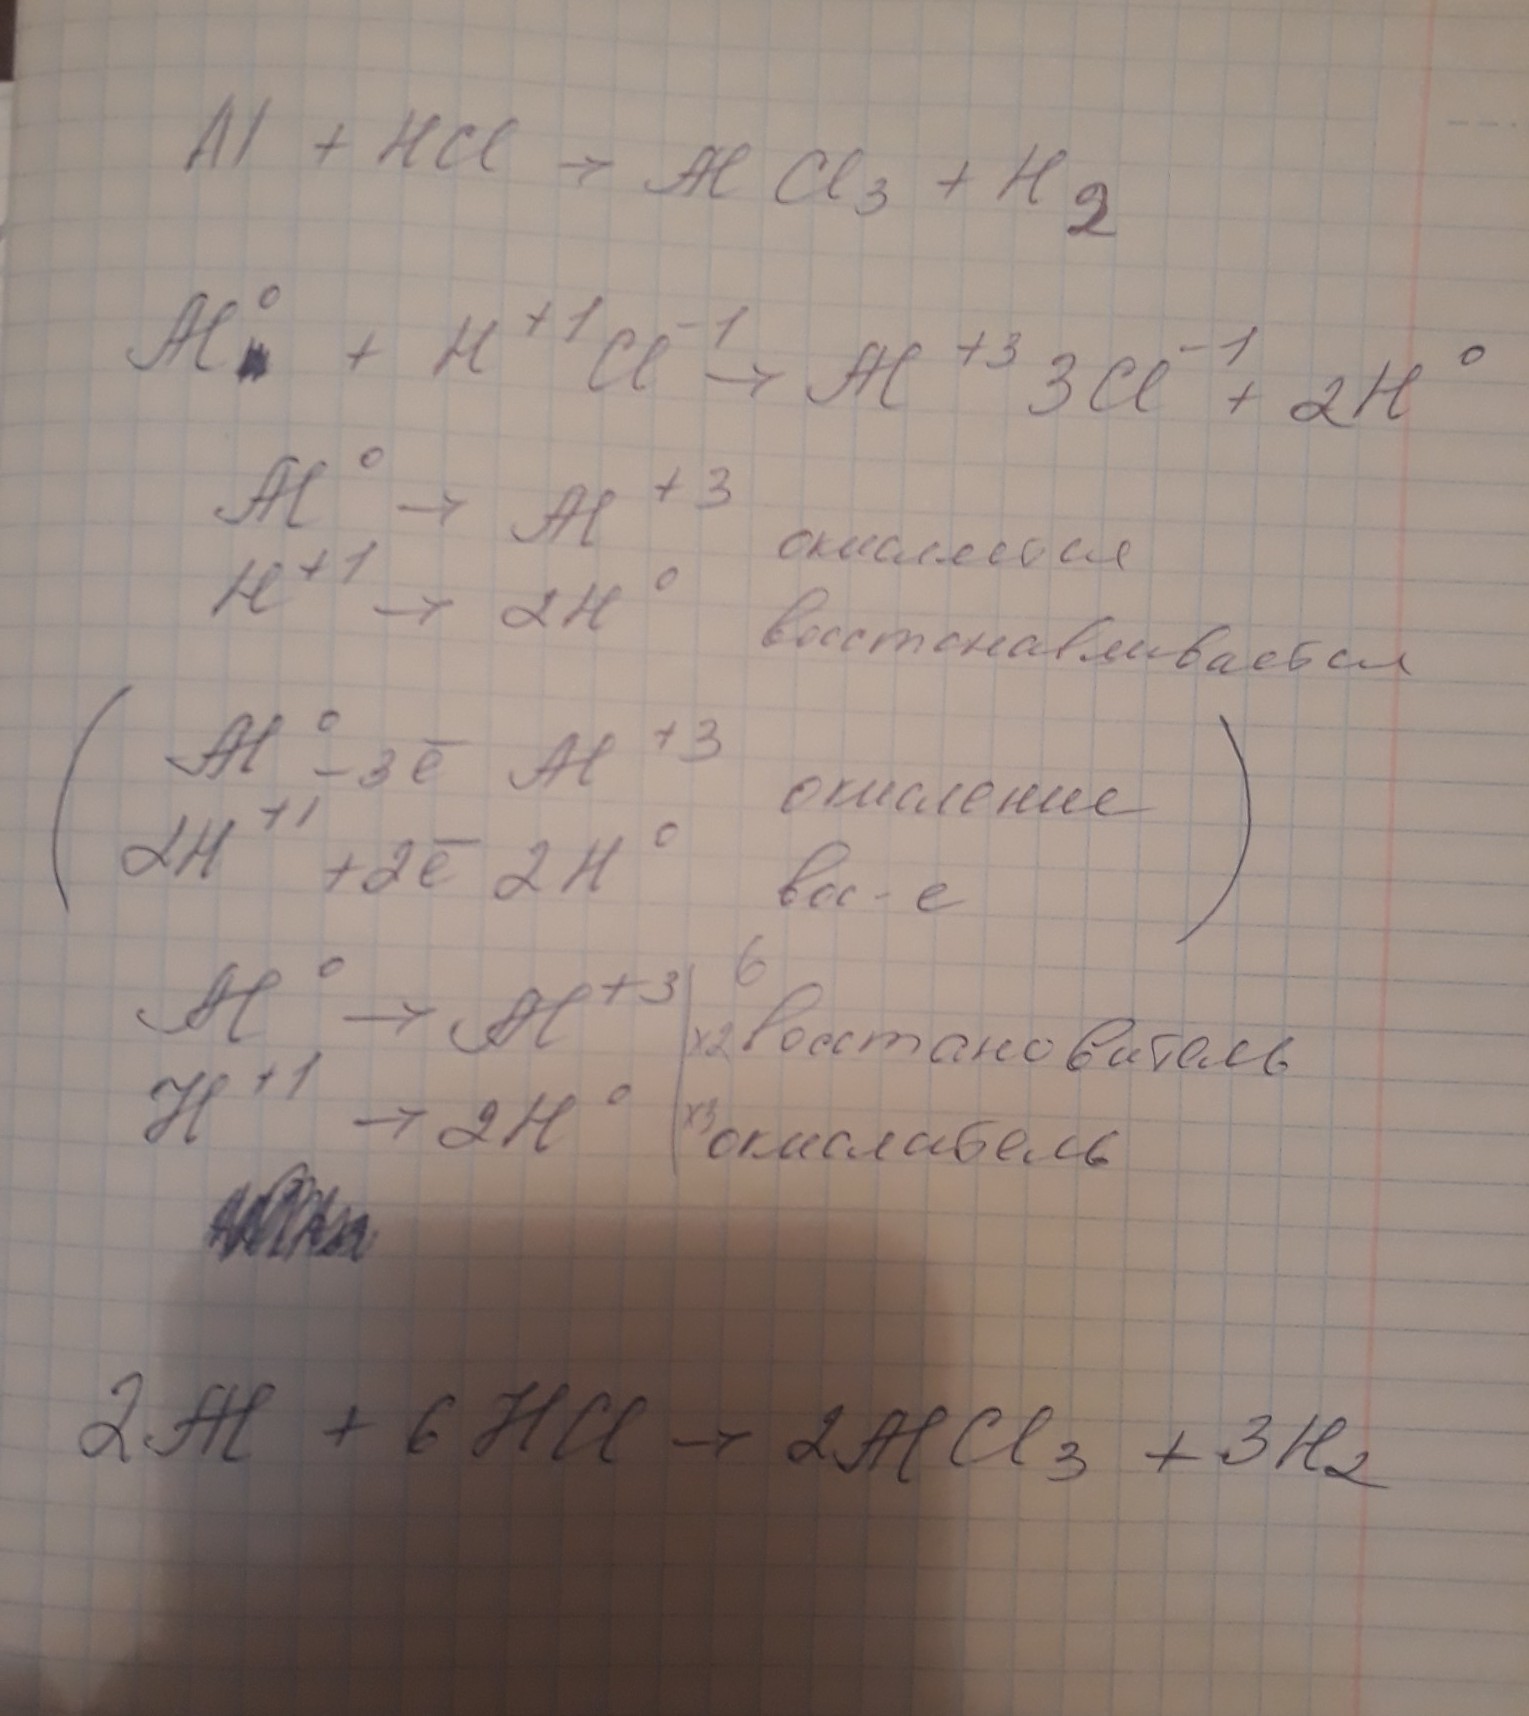 Al + HCl → AlCl₃ + H₂
Al⁰ + H⁺¹Cl⁻¹ → Al⁺³ 3Cl⁻¹ + 2H⁰
Al⁰ → Al⁺³ окисляется
H⁺¹ → 2H⁰ восстанавливается
Al⁰ - 3ē Al⁺³ окисление
2H⁺¹ + 2ē 2H⁰ вос-е
6
Al⁰ → Al⁺³ | x2 восстановитель
H⁺¹ → 2H⁰ | x3 окислитель
2Al + 6HCl → 2AlCl₃ + 3H₂